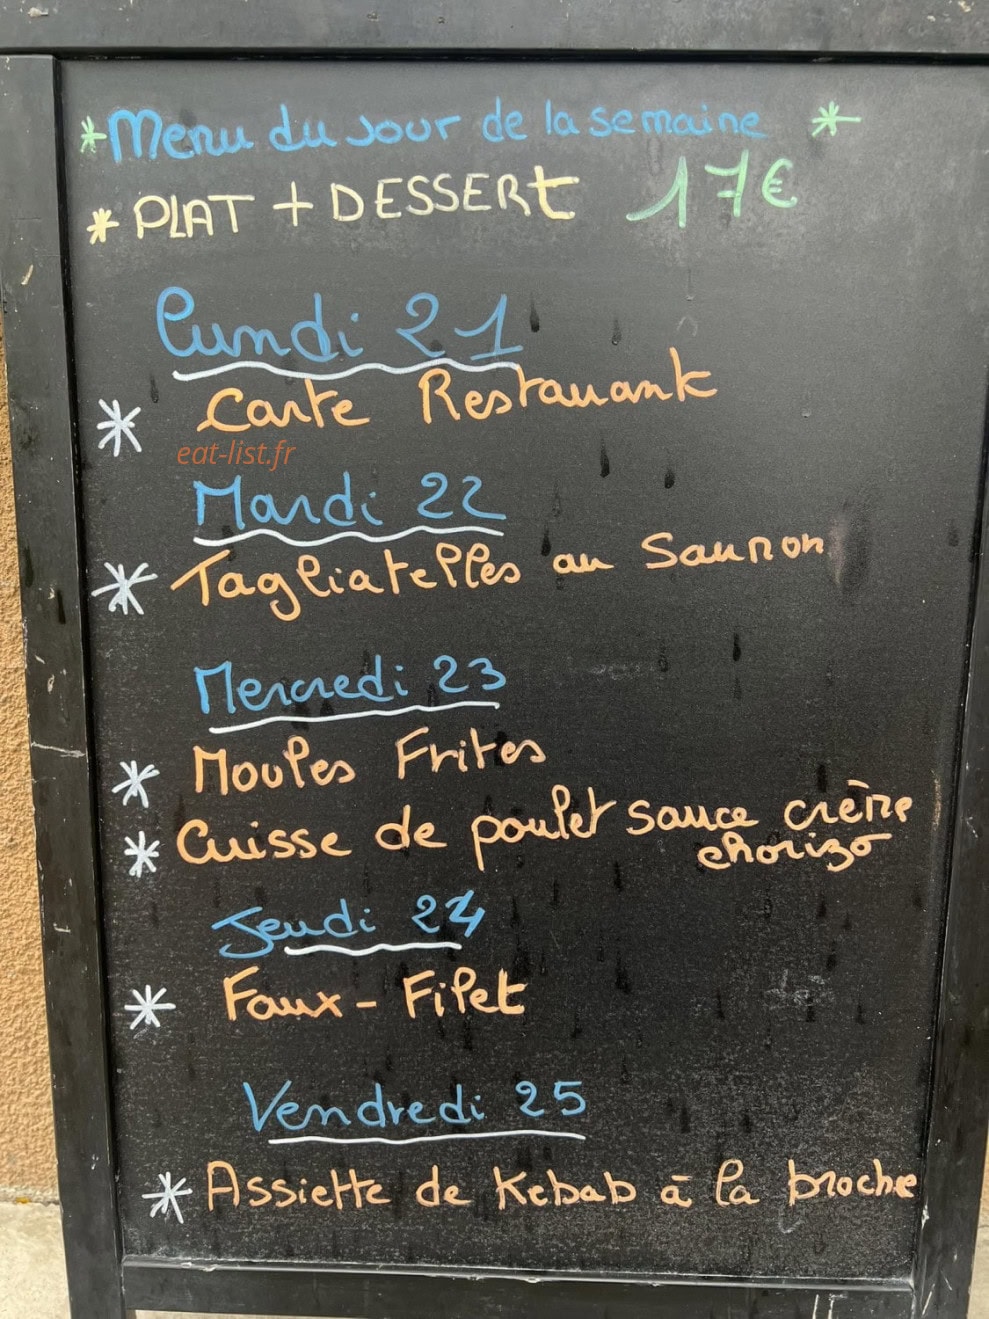 *Menu du jour de la semaine *
* PLAT + DESSERt 17€
Lundi 21
* Carte Restaurant
eat-list.fr
Mardi 22
* Tagliatelles au Saumon
Mercredi 23
* Moules Frites
* Cuisse de poulet sauce crème
chorizo
Jeudi 24
* Faux-Filet
Vendredi 25
* Assiette de Kebab à la broche